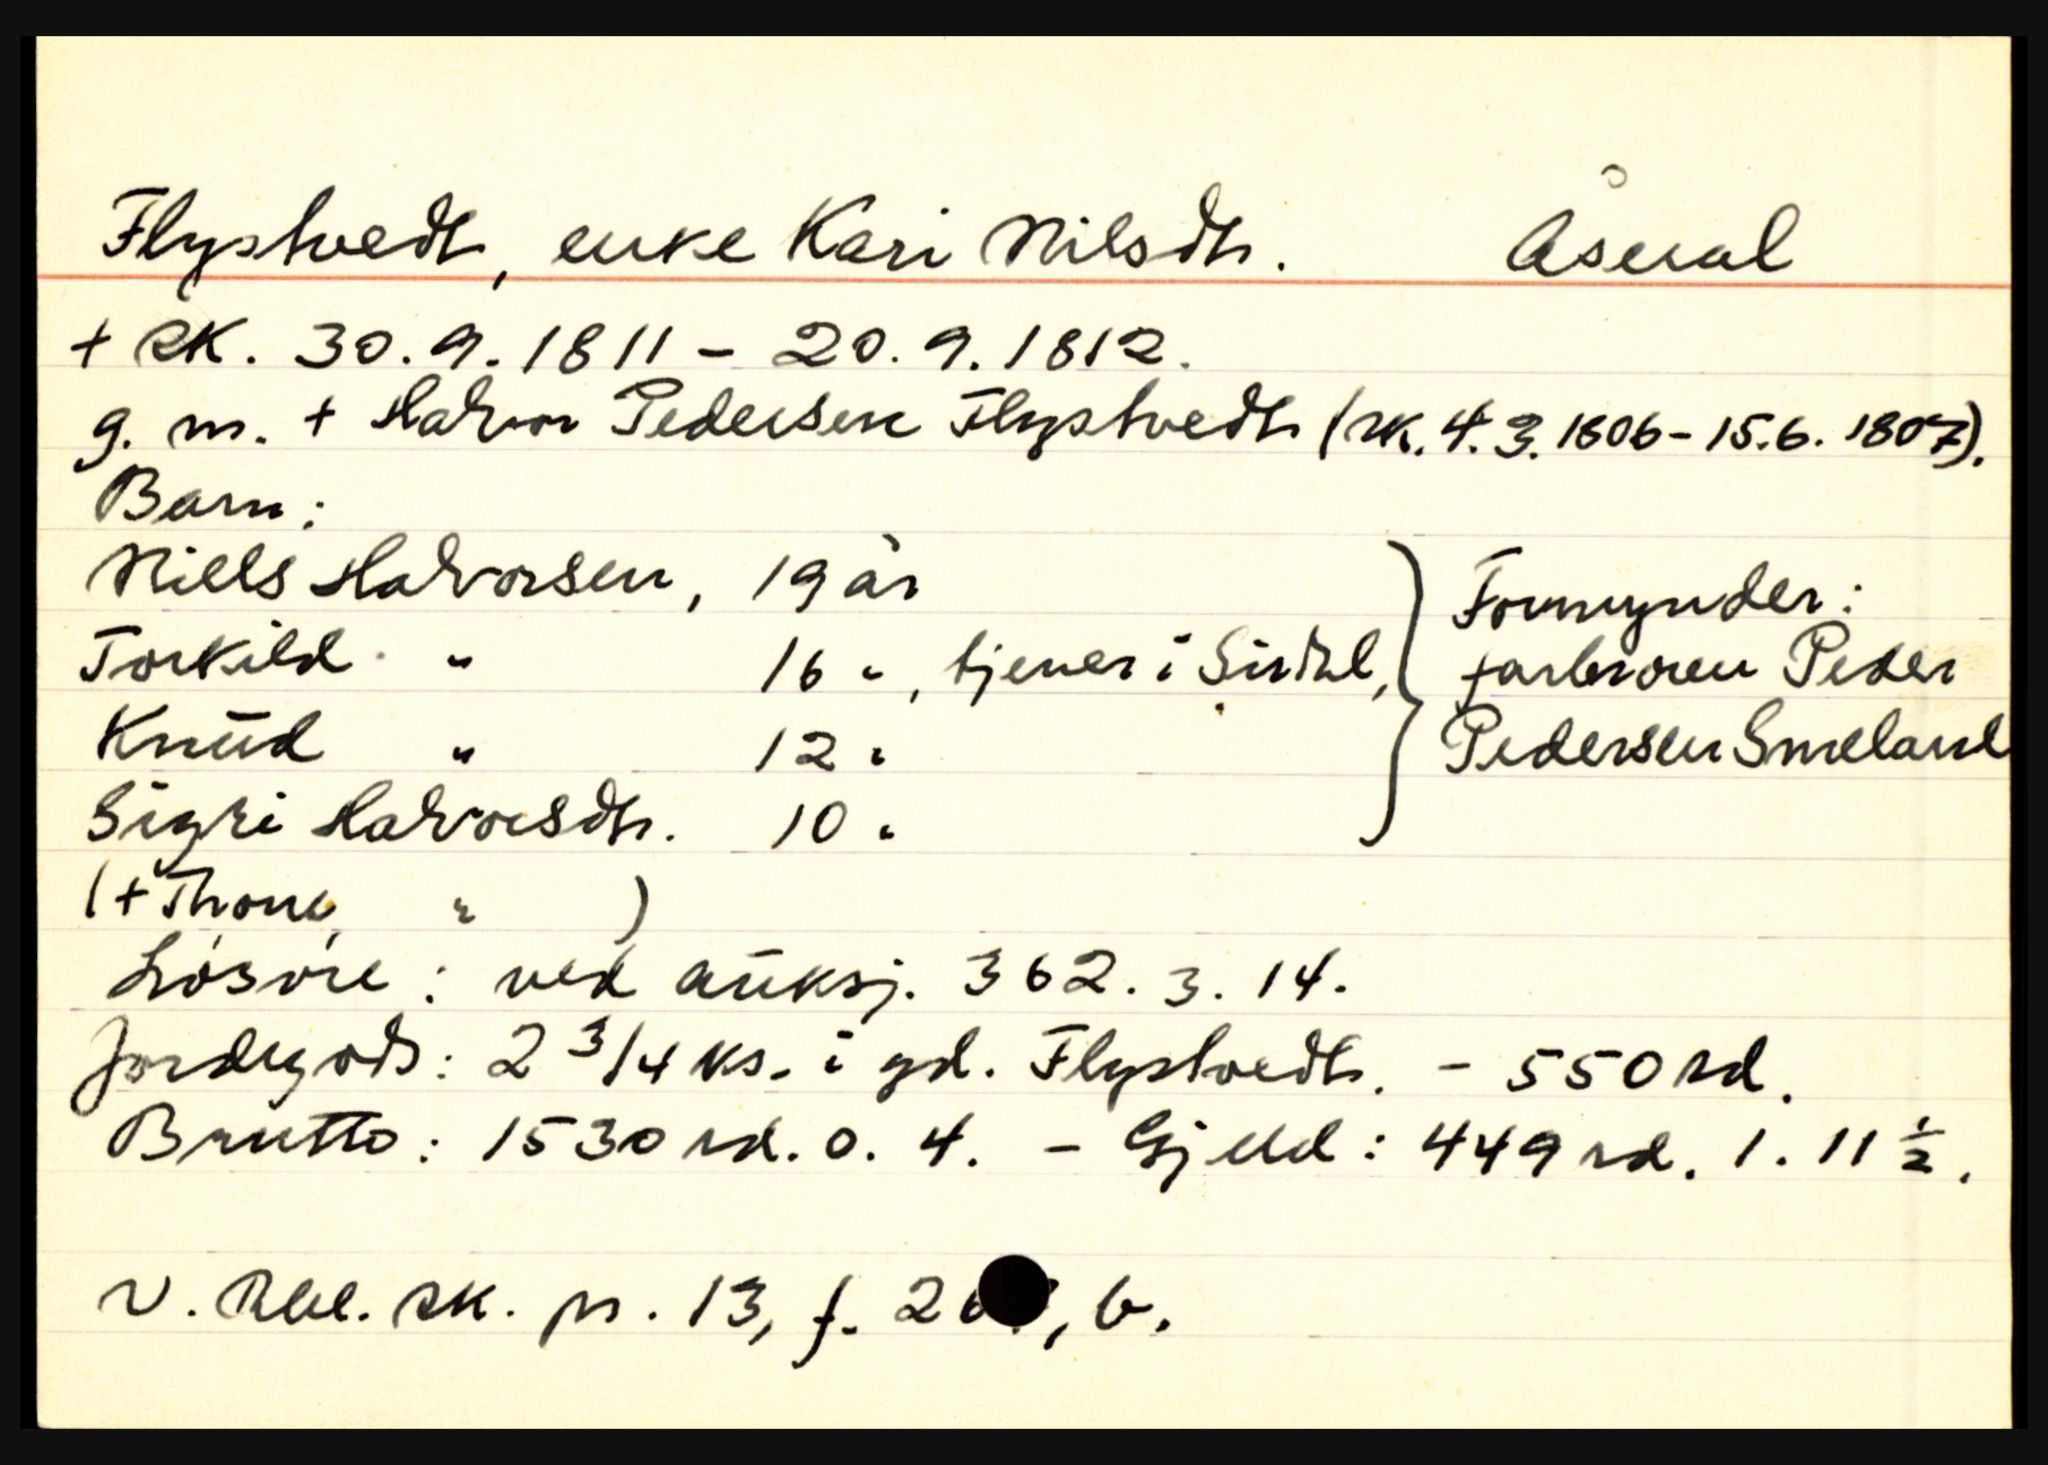 Flystvedt, enke Kari Nilsdtr. Åseral
+ RK. 30.9.1811 - 20.9.1812.
g. m. + Halvor Pedersen Flystvedt (RK. 4.3.1806 - 15.6.1807).
Barn:
Niels Halvorsen, 19 år
Torkild " 16 ", tjener i Sirdal,
Knud " 12 "
Sigri Halvorsdtr. 10 "
Formynder:
farbroren Peder
Pedersen Smeland
(+ Thone, " )
Løsøre: ved auksj. 362. 3. 14.
Jordegods: 2 3/4 ks. i gd. Flystvedt. - 550 rd.
Brutto: 1530 rd. 0. 4. - Gjeld: 449 rd. 1. 11 1/2.
V. Rbl. RK. nr. 13, f. b.